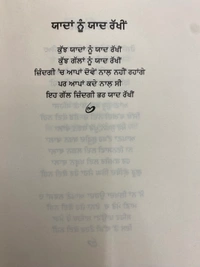 ਯਾਦਾਂ ਨੂੰ ਯਾਦ ਰੱਖੀਂ
ਕੁੱਝ ਯਾਦਾਂ ਨੂੰ ਯਾਦ ਰੱਖੀਂ
ਕੁੱਝ ਗੱਲਾਂ ਨੂੰ ਯਾਦ ਰੱਖੀਂ
ਜ਼ਿੰਦਗੀ 'ਚ ਆਪਾਂ ਦੋਵੇਂ ਨਾਲ ਨਹੀਂ ਰਹਾਂਗੇ
ਪਰ ਆਪਾਂ ਕਦੇ ਨਾਲ ਸੀ
ਇਹ ਗੱਲ ਜ਼ਿੰਦਗੀ ਭਰ ਯਾਦ ਰੱਖੀਂ